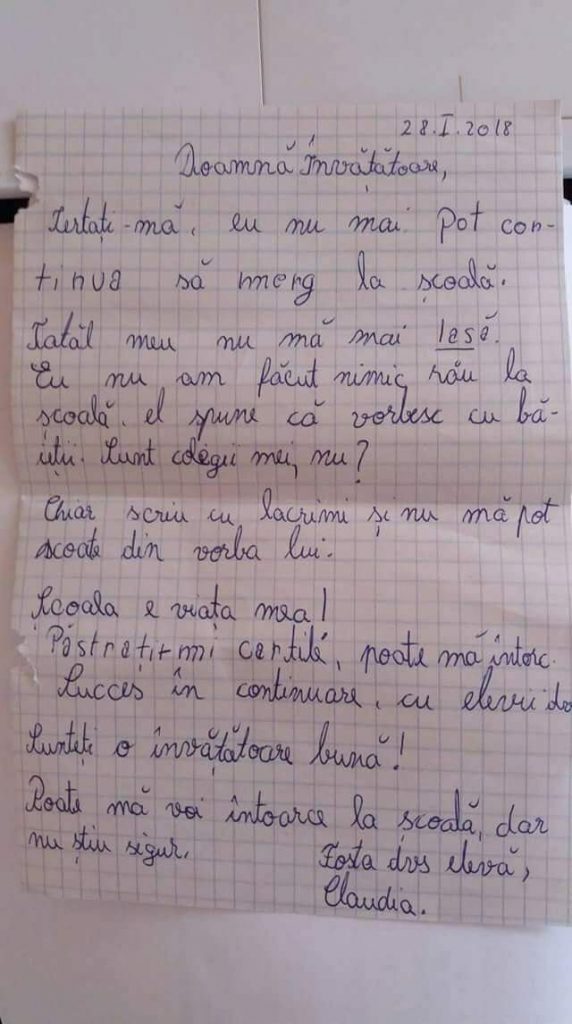 28.I.2018
Doamnă Învățătoare,
Iertați-mă, eu nu mai pot con-
tinua să merg la școală.
Tatăl meu nu mă mai lasă.
Eu nu am făcut nimic rău la
școală. el spune că vorbesc cu bă-
ieții. Sunt colegii mei, nu?
Chiar scriu cu lacrimi și nu mă pot
scoate din vorba lui.
Școala e viața mea!
Păstrați-mi cartile, poate mă întorc.
Succes în continuare, cu elevii dvs
Sunteți o învățătoare bună!
Poate mă voi întoarce la școală, dar
nu știu sigur.
Fosta dvs elevă,
Claudia.